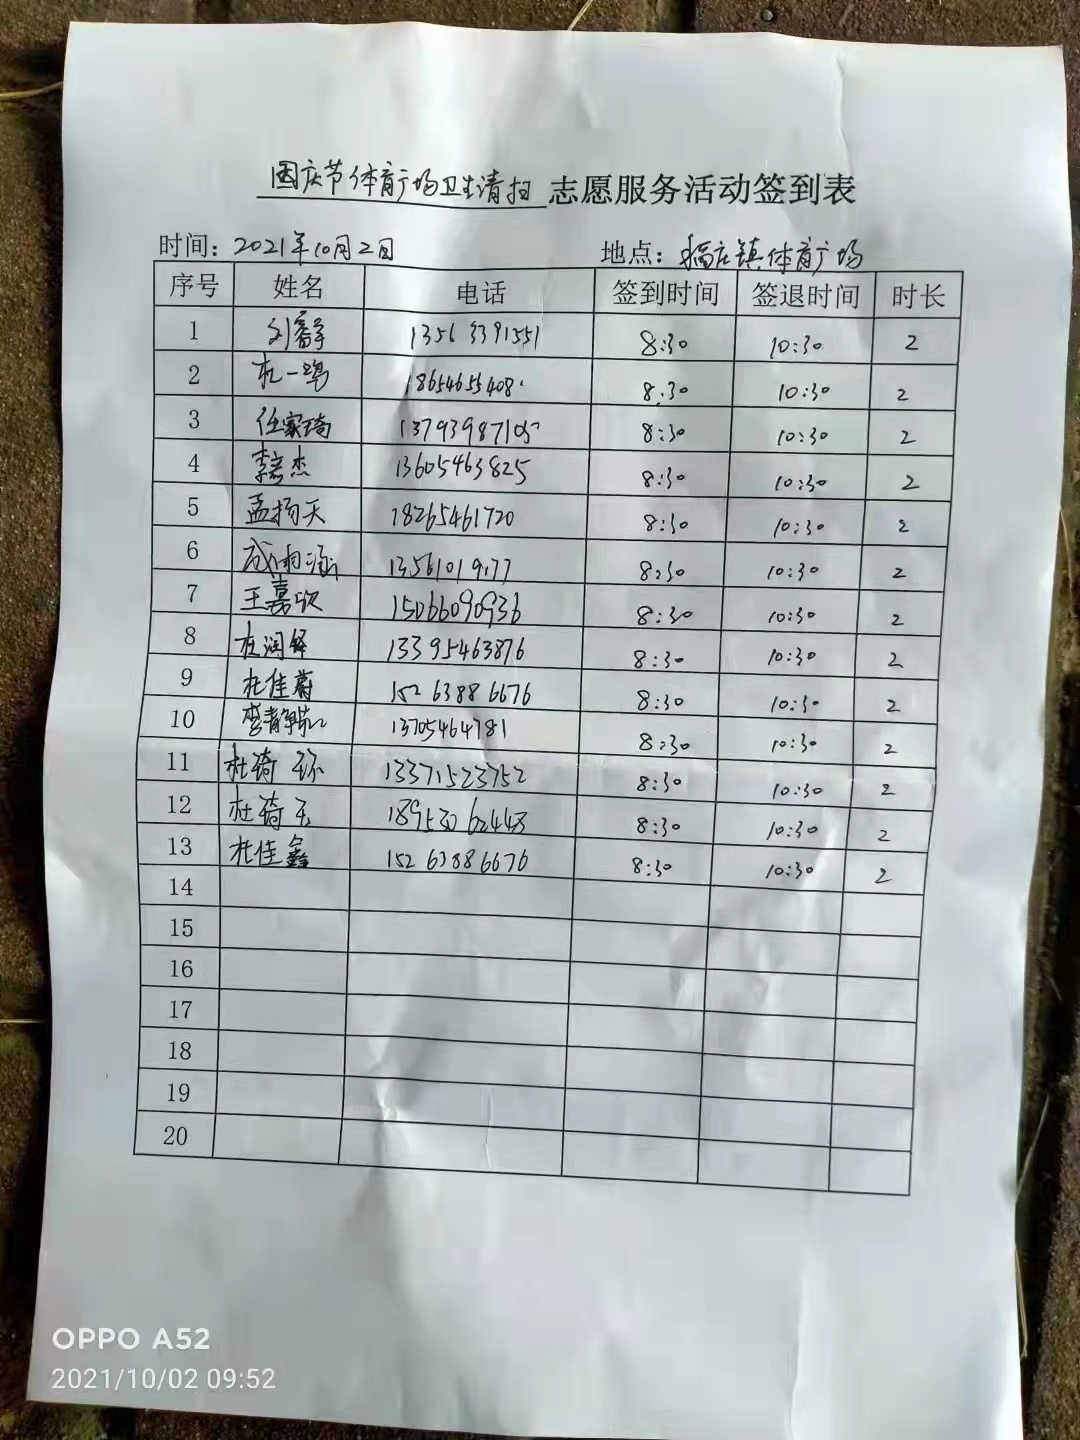 国庆节体育广场卫生清扫 志愿服务活动签到表
时间：2021年10月2日 地点：稻庄镇体育广场
序号 姓名 电话 签到时间 签退时间 时长
1 刘 13563391551 8:30 10:30 2
2 杜一鸣 1865465540 8:30 10:30 2
3 任家琦 13793987105 8:30 10:30 2
4 李宏杰 13605463825 8:30 10:30 2
5 孟扬天 18265461720 8:30 10:30 2
6 成湘涵 13561019177 8:30 10:30 2
7 王嘉欣 15066090936 8:30 10:30 2
8 杜润铎 13395463876 8:30 10:30 2
9 杜佳蔚 152 6388 6676 8:30 10:30 2
10 李静茹 13705464781 8:30 10:30 2
11 杜琦 13371523752 8:30 10:30 2
12 杜琦玉 189530 62448 8:30 10:30 2
13 杜佳鑫 152 6388 6676 8:30 10:30 2
14
15
16
17
18
19
20
OPPO A52
2021/10/02 09:52